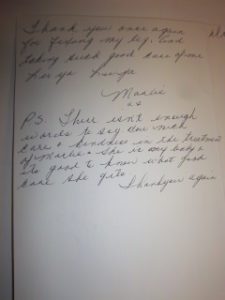 Thank you once again
for fixing my leg. And
taking such good care of me
Marlie
P.S. There isn't enough
words to say how much
care + kindness in the treatment
of Marlie. She is my baby &
its good to know what good
care she gets
Thankyou again